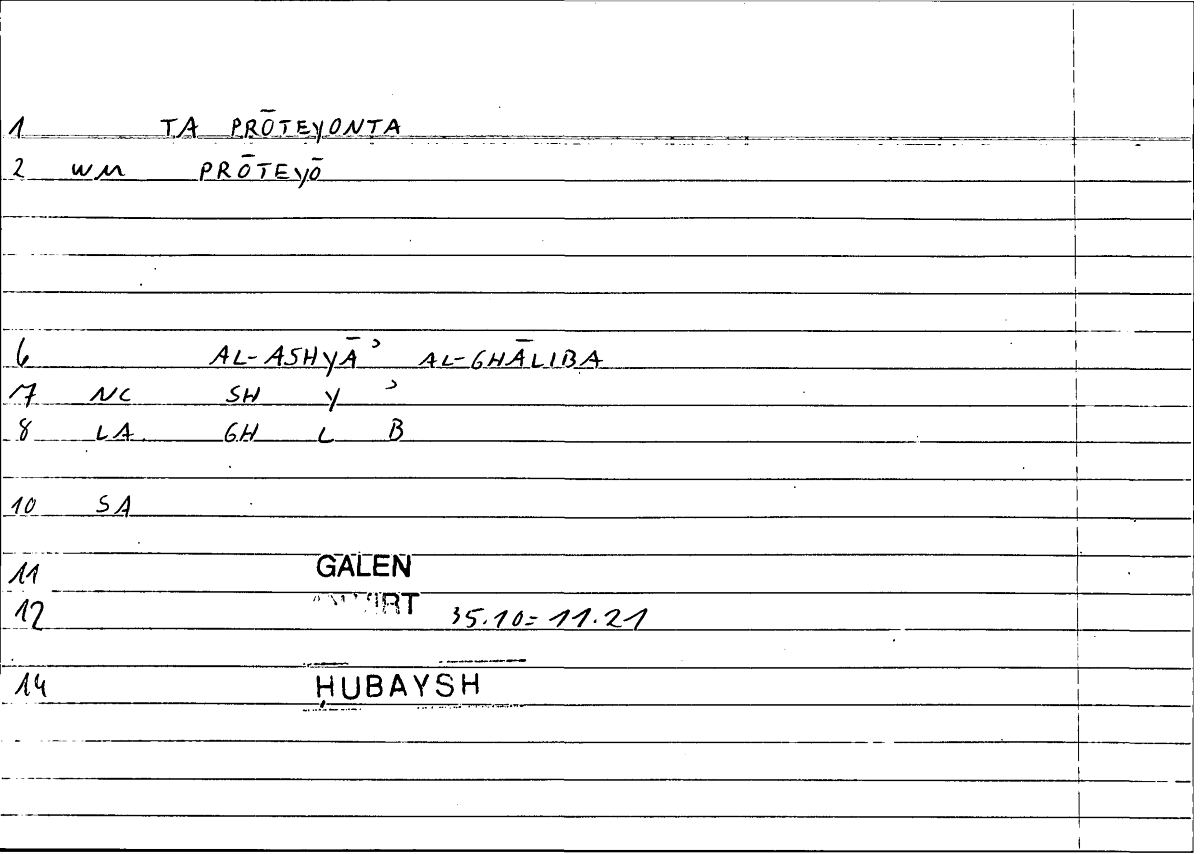 1 TA PRŌTEYONTA
2 WM PRŌTEYŌ
6 AL-ASHYĀʾ AL-GHĀLIBA
7 NC SH Y ʾ
8 LA GH L B
10 SA
11 GALEN
12 35.10=11.21
14 ḤUBAYSH